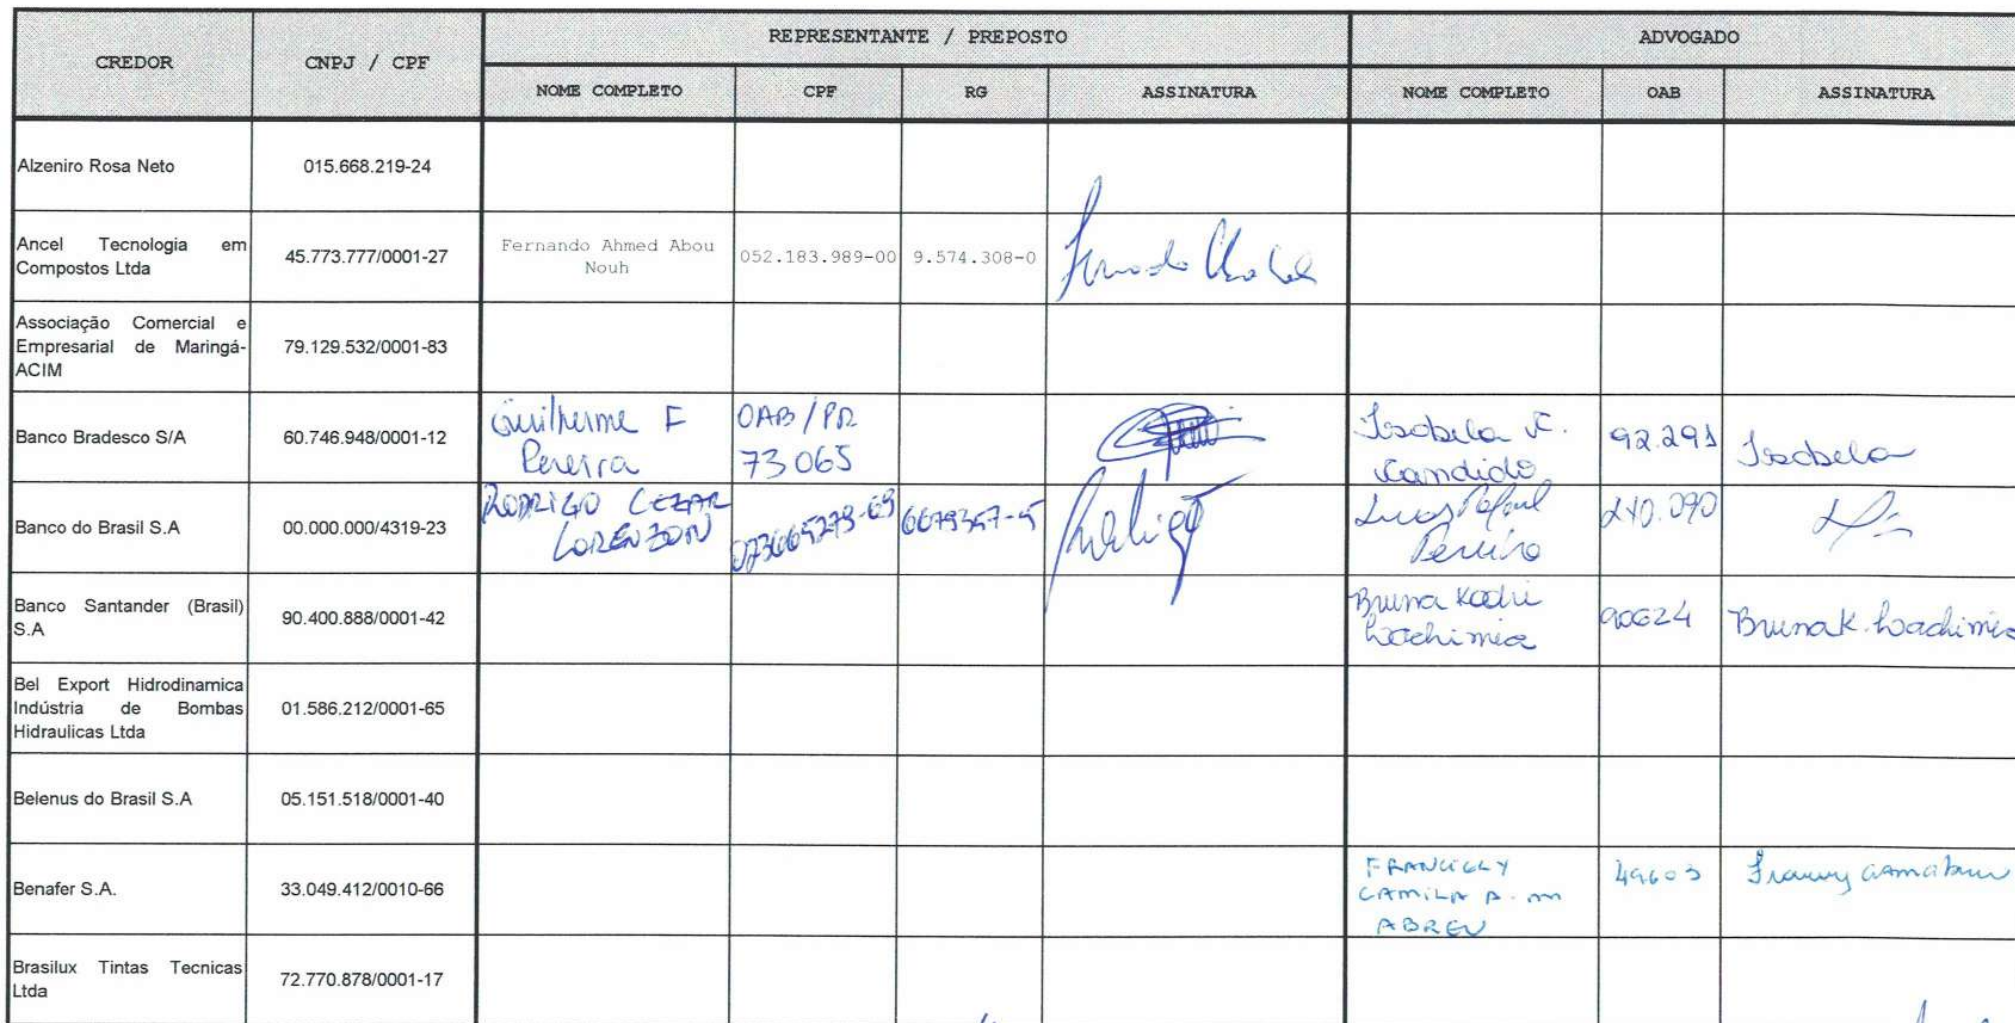 CREDOR
CNPJ / CPF
REPRESENTANTE / PREPOSTO
ADVOGADO
NOME COMPLETO
CPF
RG
ASSINATURA
NOME COMPLETO
OAB
ASSINATURA
Alzeniro Rosa Neto
015.668.219-24
Ancel Tecnologia em
Compostos Ltda
45.773.777/0001-27
Fernando Ahmed Abou
Nouh
052.183.989-00
9.574.308-0
Associação Comercial e
Empresarial de Maringá-
ACIM
79.129.532/0001-83
Banco Bradesco S/A
60.746.948/0001-12
Guilherme F
Pereira
OAB/PR
73065
Isabela
Candido
92.291
Isabela
Banco do Brasil S.A
00.000.000/4319-23
RODRIGO CEZAR
LORENZON
Lucas Rafael
Pereira
Banco Santander (Brasil)
S.A
90.400.888/0001-42
Bruna
90624
Bruna K.
Bel Export Hidrodinamica
Indústria de Bombas
Hidraulicas Ltda
01.586.212/0001-65
Belenus do Brasil S.A
05.151.518/0001-40
Benafer S.A.
33.049.412/0010-66
CAMILA A. M
ABREU
49603
Brasilux Tintas Tecnicas
Ltda
72.770.878/0001-17